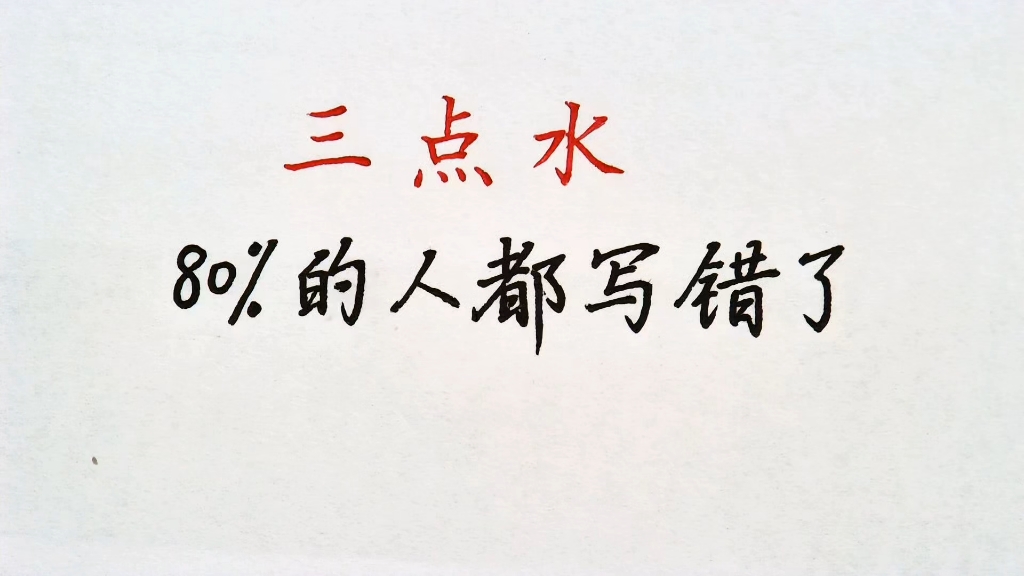 三点水
80%的人都写错了